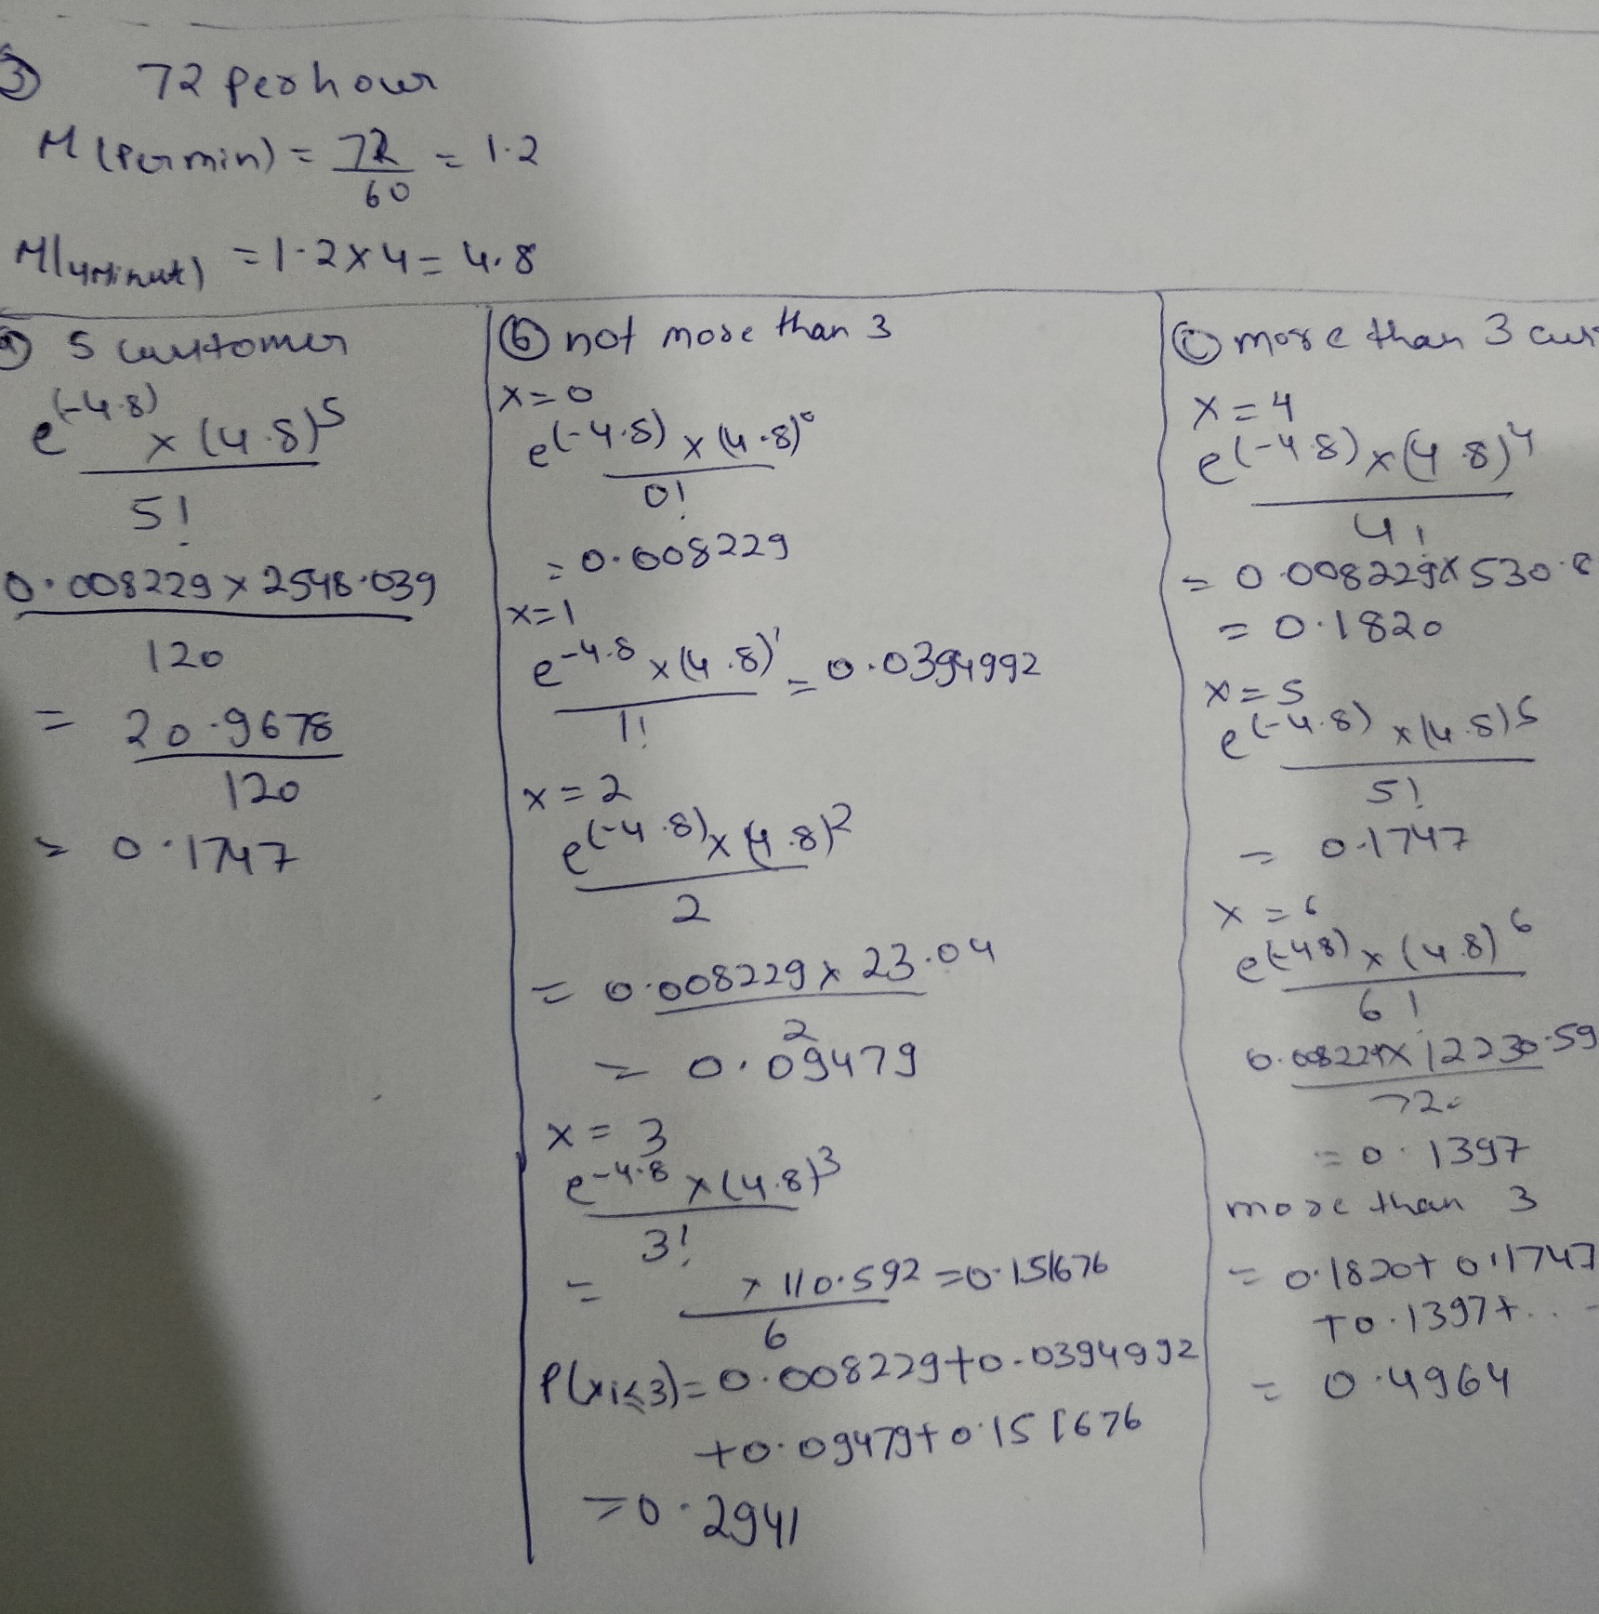 ③ 72 per hour
M (Per min) = 72/60 = 1.2
M(4Minut) = 1.2 x 4 = 4.8
ⓐ 5 customer
e^(-4.8) x (4.8)^5
5!
0.008229 x 2548.039
120
= 20.9678
120
= 0.1747
ⓑ not more than 3
x=0
e^(-4.8) x (4.8)^0
0!
= 0.008229
x=1
e^-4.8 x (4.8)^1 = 0.0394992
1!
x = 2
e^(-4.8) x (4.8)^2
2
= 0.008229 x 23.04
2
= 0.09479
x = 3
e^-4.8 x (4.8)^3
3!
= x 110.592 = 0.151676
6
P(xi≤3) = 0.008229+0.0394992
+0.09479+0.151676
=0.2941
ⓒ more than 3 cus
x = 4
e^(-4.8) x (4.8)^4
4!
= 0.008229 x 530.8
= 0.1820
x = 5
e^(-4.8) x (4.8)^5
5!
= 0.1747
x = 6
e^(-4.8) x (4.8)^6
6!
0.008229 x 12230.59
720
= 0.1397
more than 3
= 0.1820 + 0.1747
+0.1397+...
= 0.4964